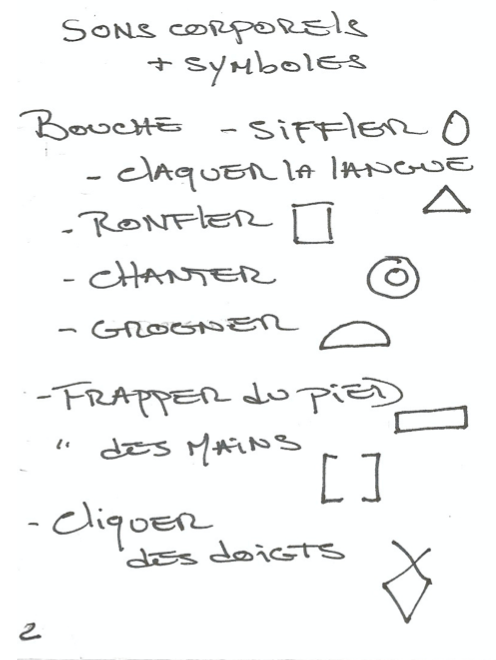 SONS CORPORELS
+ SYMBOLES
BOUCHE - SIFFLER
- CLAQUER LA LANGUE
- RONFLER
- CHANTER
- GROGNER
- FRAPPER DU PIED
" DES MAINS
- CLIQUER
DES DOIGTS
2